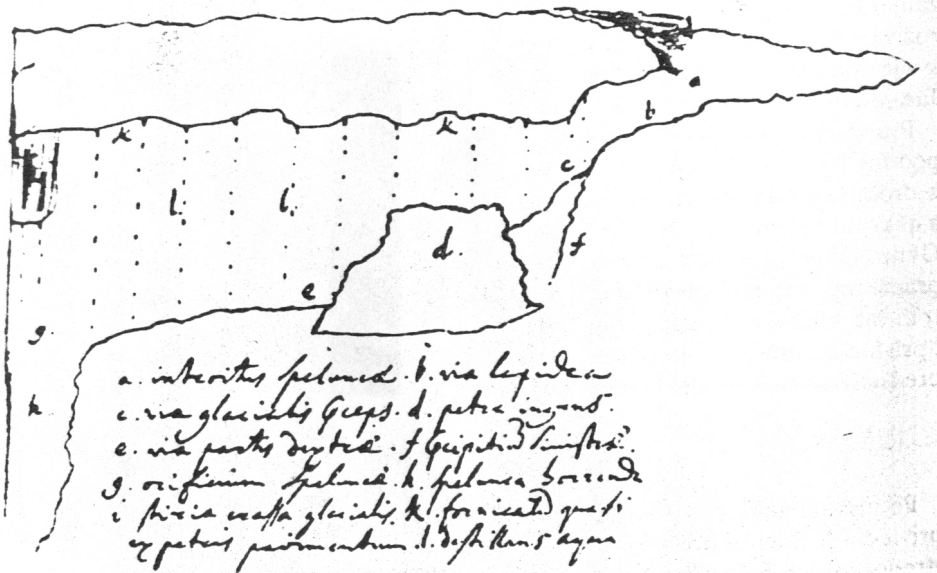 a
k k b
c
l. l.
d.
f
e
g
h
a. introitus speluncæ b. via lapidea
c. via glacialis præceps. d. petra ingens.
e. via partis dextræ. f præcipitiũ sinistræ.
g. orificium speluncæ. h. spelunca horrenda
i stiria crassa glacialis. k. fornicatũ quasi
ex petris pavimentum. l. destillans aqua